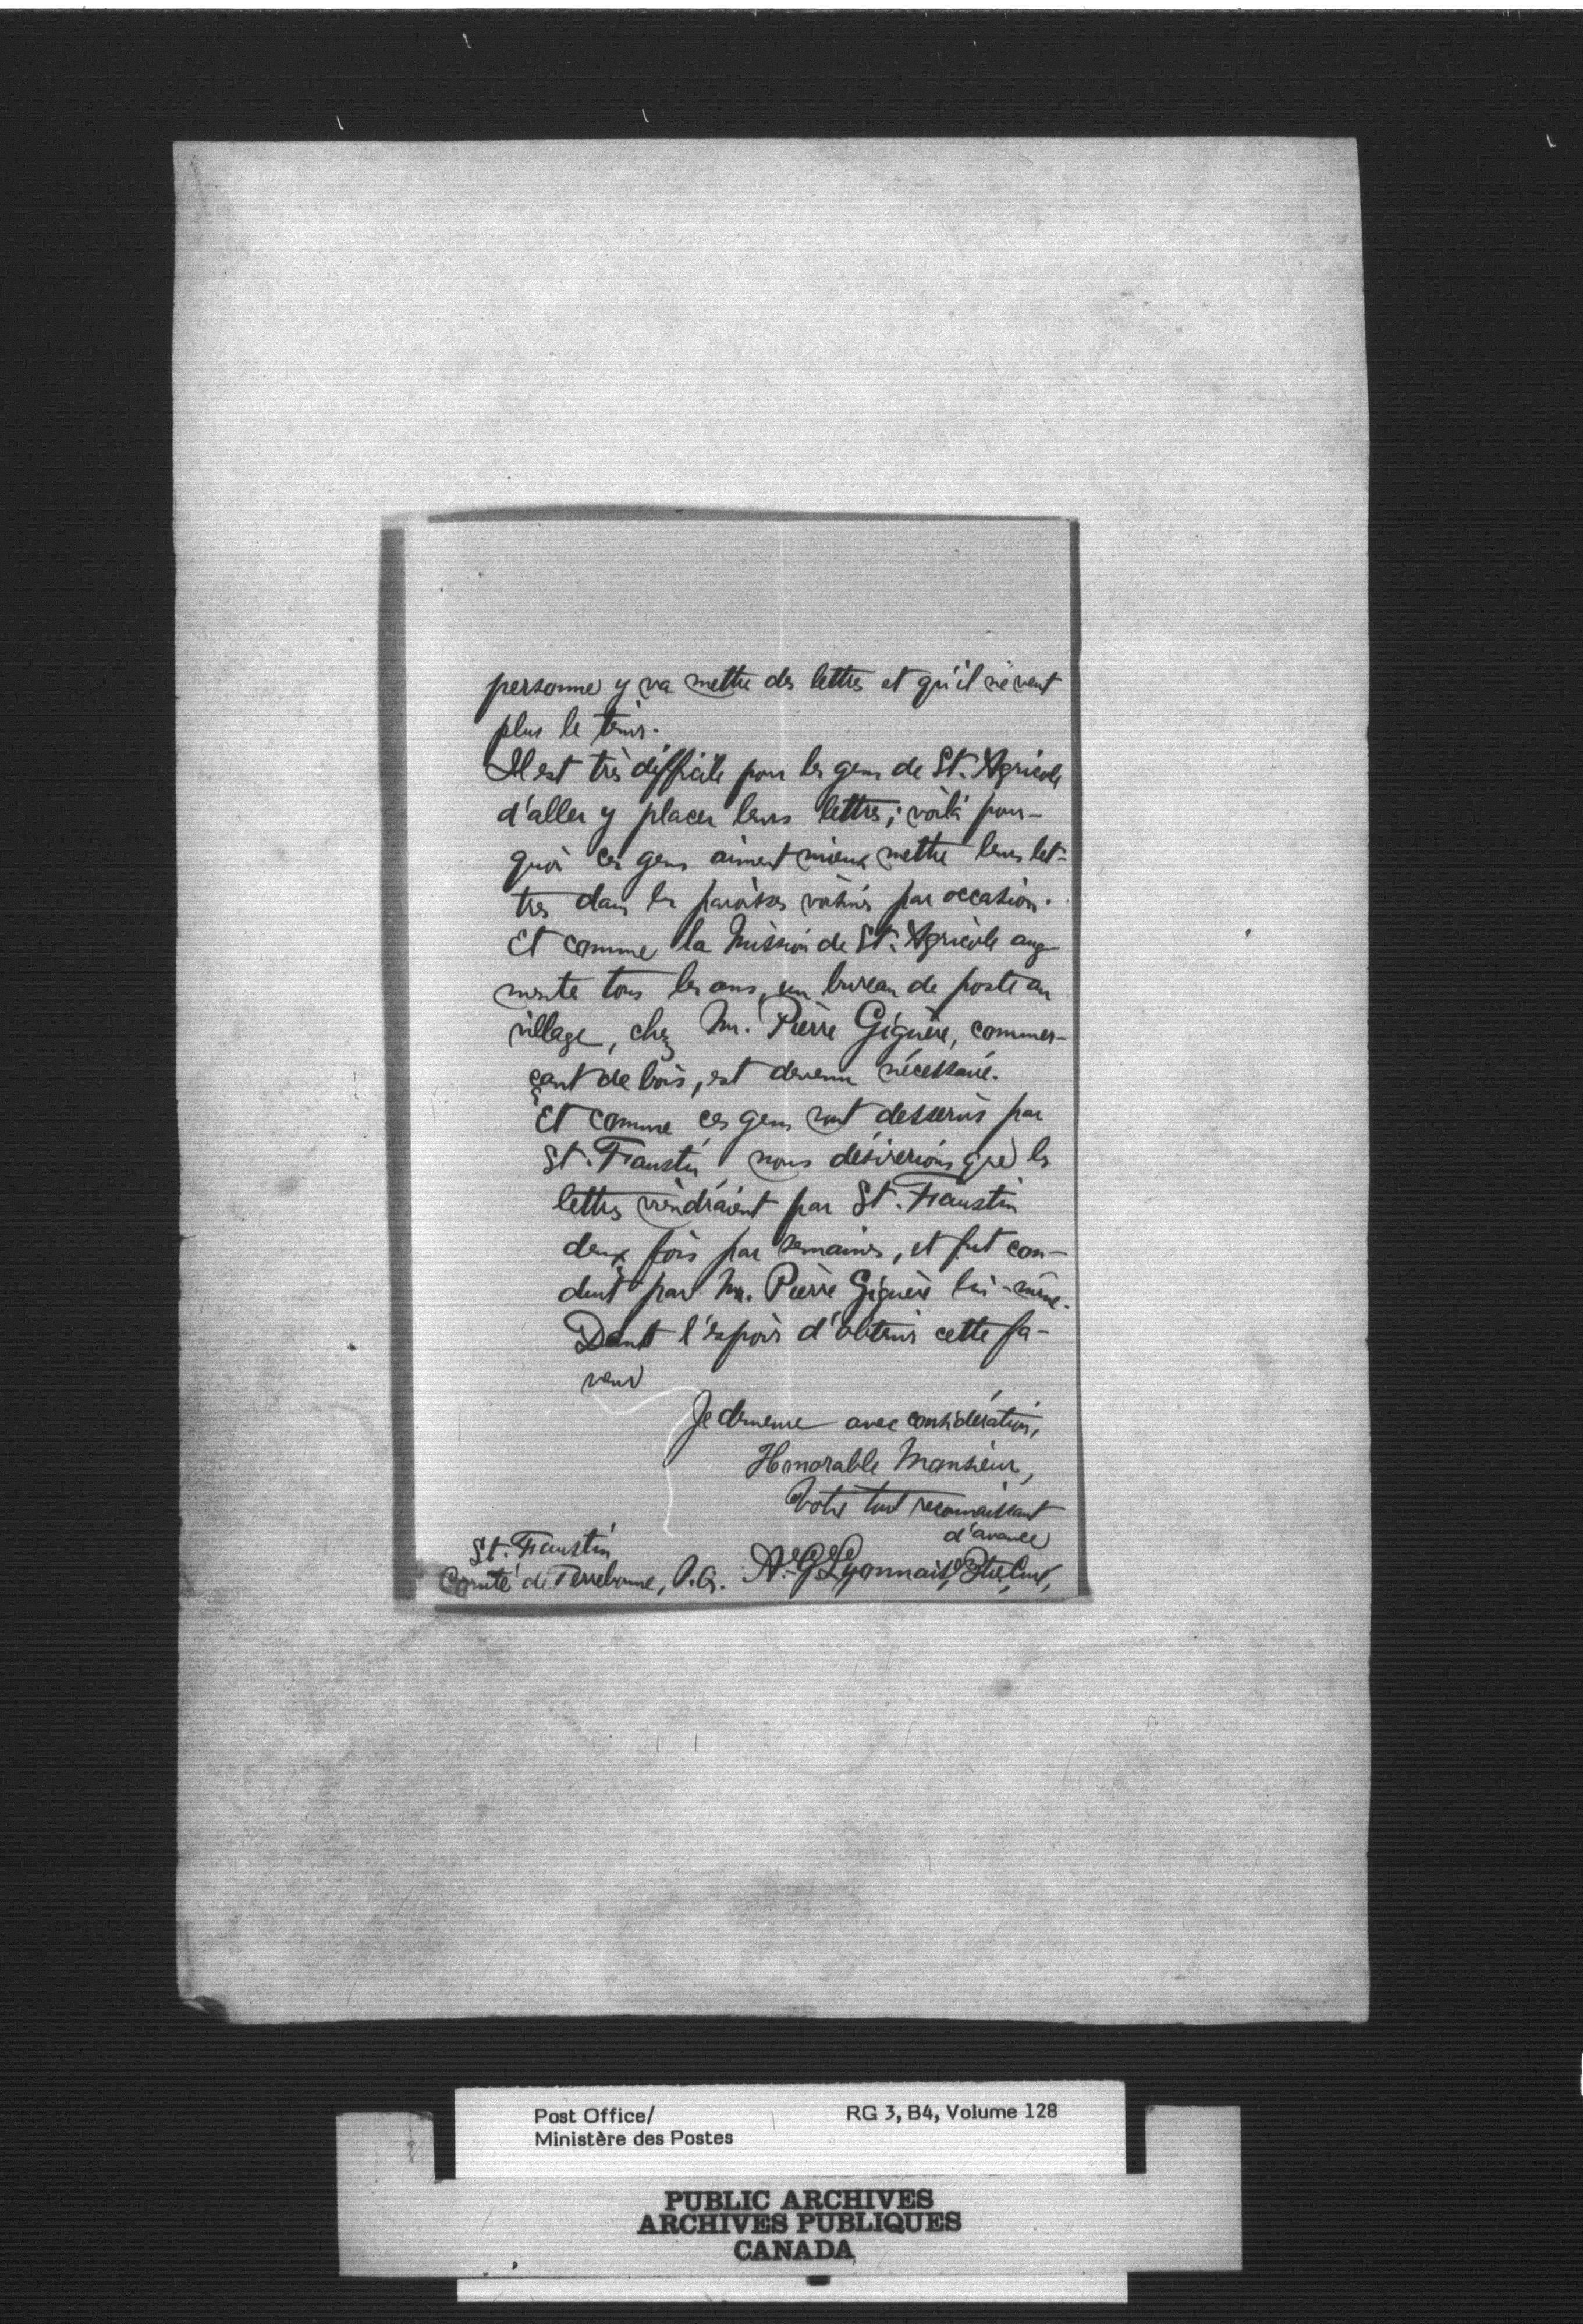 personne y va mettre des lettres et qu'il ne veut
plus le tenir.
Il est très difficile pour les gens de St. Agricole
d'aller y placer leurs lettres; voilà pour-
quoi ces gens aiment mieux mettre leurs let-
tres dans les paroisses voisines par occasion.
Et comme la Mission de St. Agricole aug-
mente tous les ans, un bureau de poste au
village, chez Mr. Pierre Giguère, commer-
çant de bois, est devenu nécessaire.
Et comme ces gens sont desservis par
St. Faustin nous désirerions que les
lettres viendraient par St. Faustin
deux fois par semaines, et fut con-
duit par Mr. Pierre Giguère lui-même.
Dans l'espoir d'obtenir cette fa-
veur
Je demeure avec considération,
Honorable Monsieur,
Votre tout reconnaissant
d'avance
St. Faustin
Comté de Terrebonne, P.Q. A.-G. Lyonnais, Ptre, Curé,
Post Office/
Ministère des Postes
RG 3, B4, Volume 128
PUBLIC ARCHIVES
ARCHIVES PUBLIQUES
CANADA